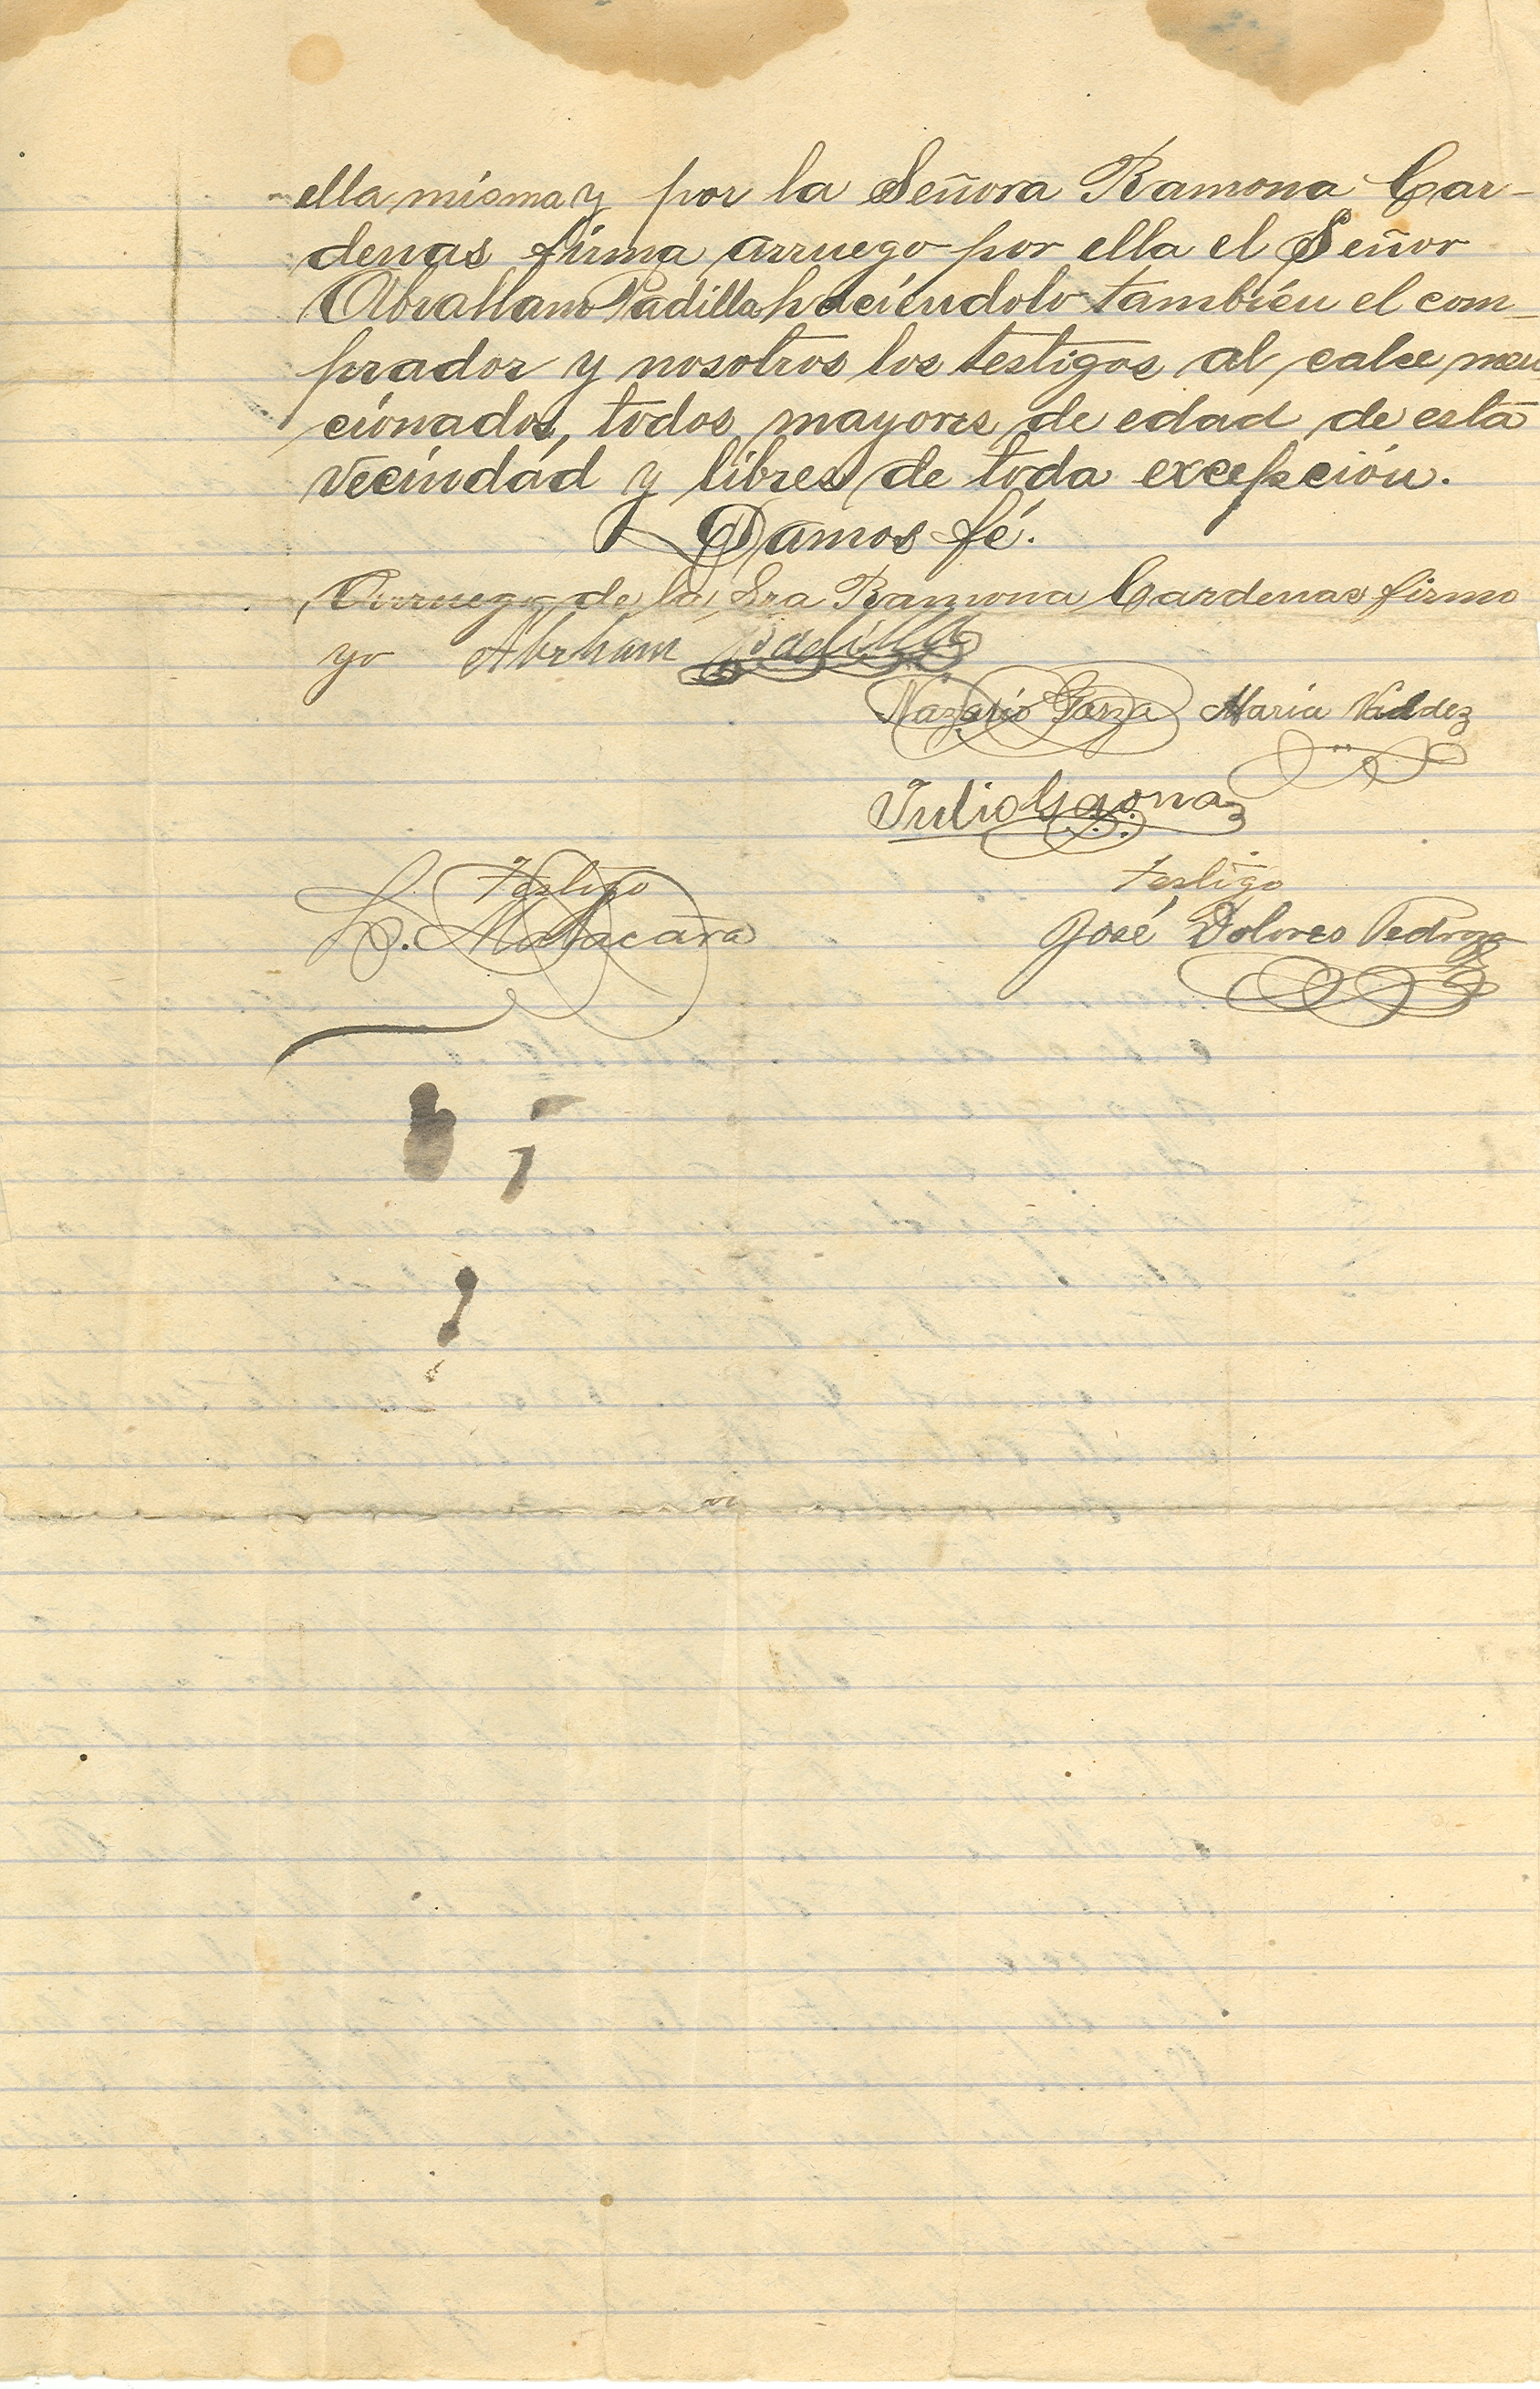 ella misma y por la Señora Ramona Car-
denas firma arruego por ella el Señor
Abraham Padilla haciéndolo también el com-
prador y nosotros los testigos al calse men
cionados, todos mayores de edad de esta
vecindad y libres de toda excepción.
Damos fé.
Arruego de la Sra Ramona Cardenas firmo
yo Abrham Padilla
Nazario Garza María Valdez
Julio Gaona
Testigo Testigo
L. Malacara José Dolores Pedroza